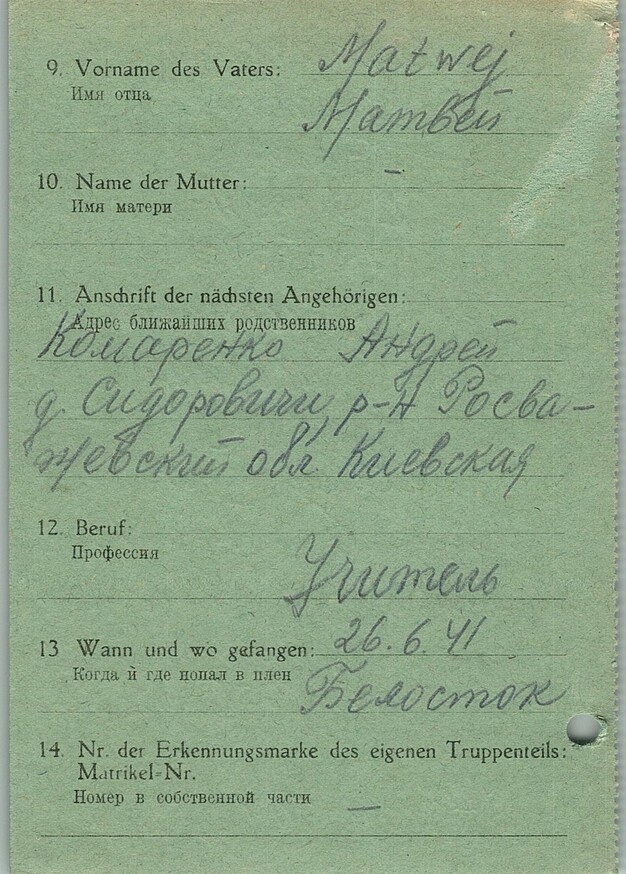 9. Vorname des Vaters: Matwej
Имя отца
Матвей
10. Name der Mutter: –
Имя матери
11. Anschrift der nächsten Angehörigen:
Адрес ближайших родственников
Комаренко Андрей
д. Сидоровичи, р-н Росва-
жевский обл. Киевская
12. Beruf:
Профессия
Учитель
13 Wann und wo gefangen: 26.6.41
Когда й где попал в плен
Белосток
14. Nr. der Erkennungsmarke des eigenen Truppenteils:
Matrikel-Nr.
Номер в собственной части –